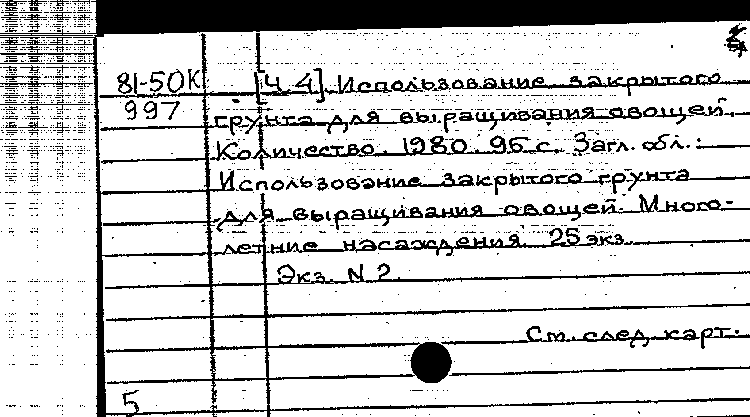 81-50К [Ч.4] Использование закрытого
997 грунта для выращивания овощей.
Количество. 1980. 96 с. Загл. обл.:
Использование закрытого грунта
для выращивания овощей. Много-
летние насаждения. 25 экз.
Экз. N 2.
См. след. карт.
5